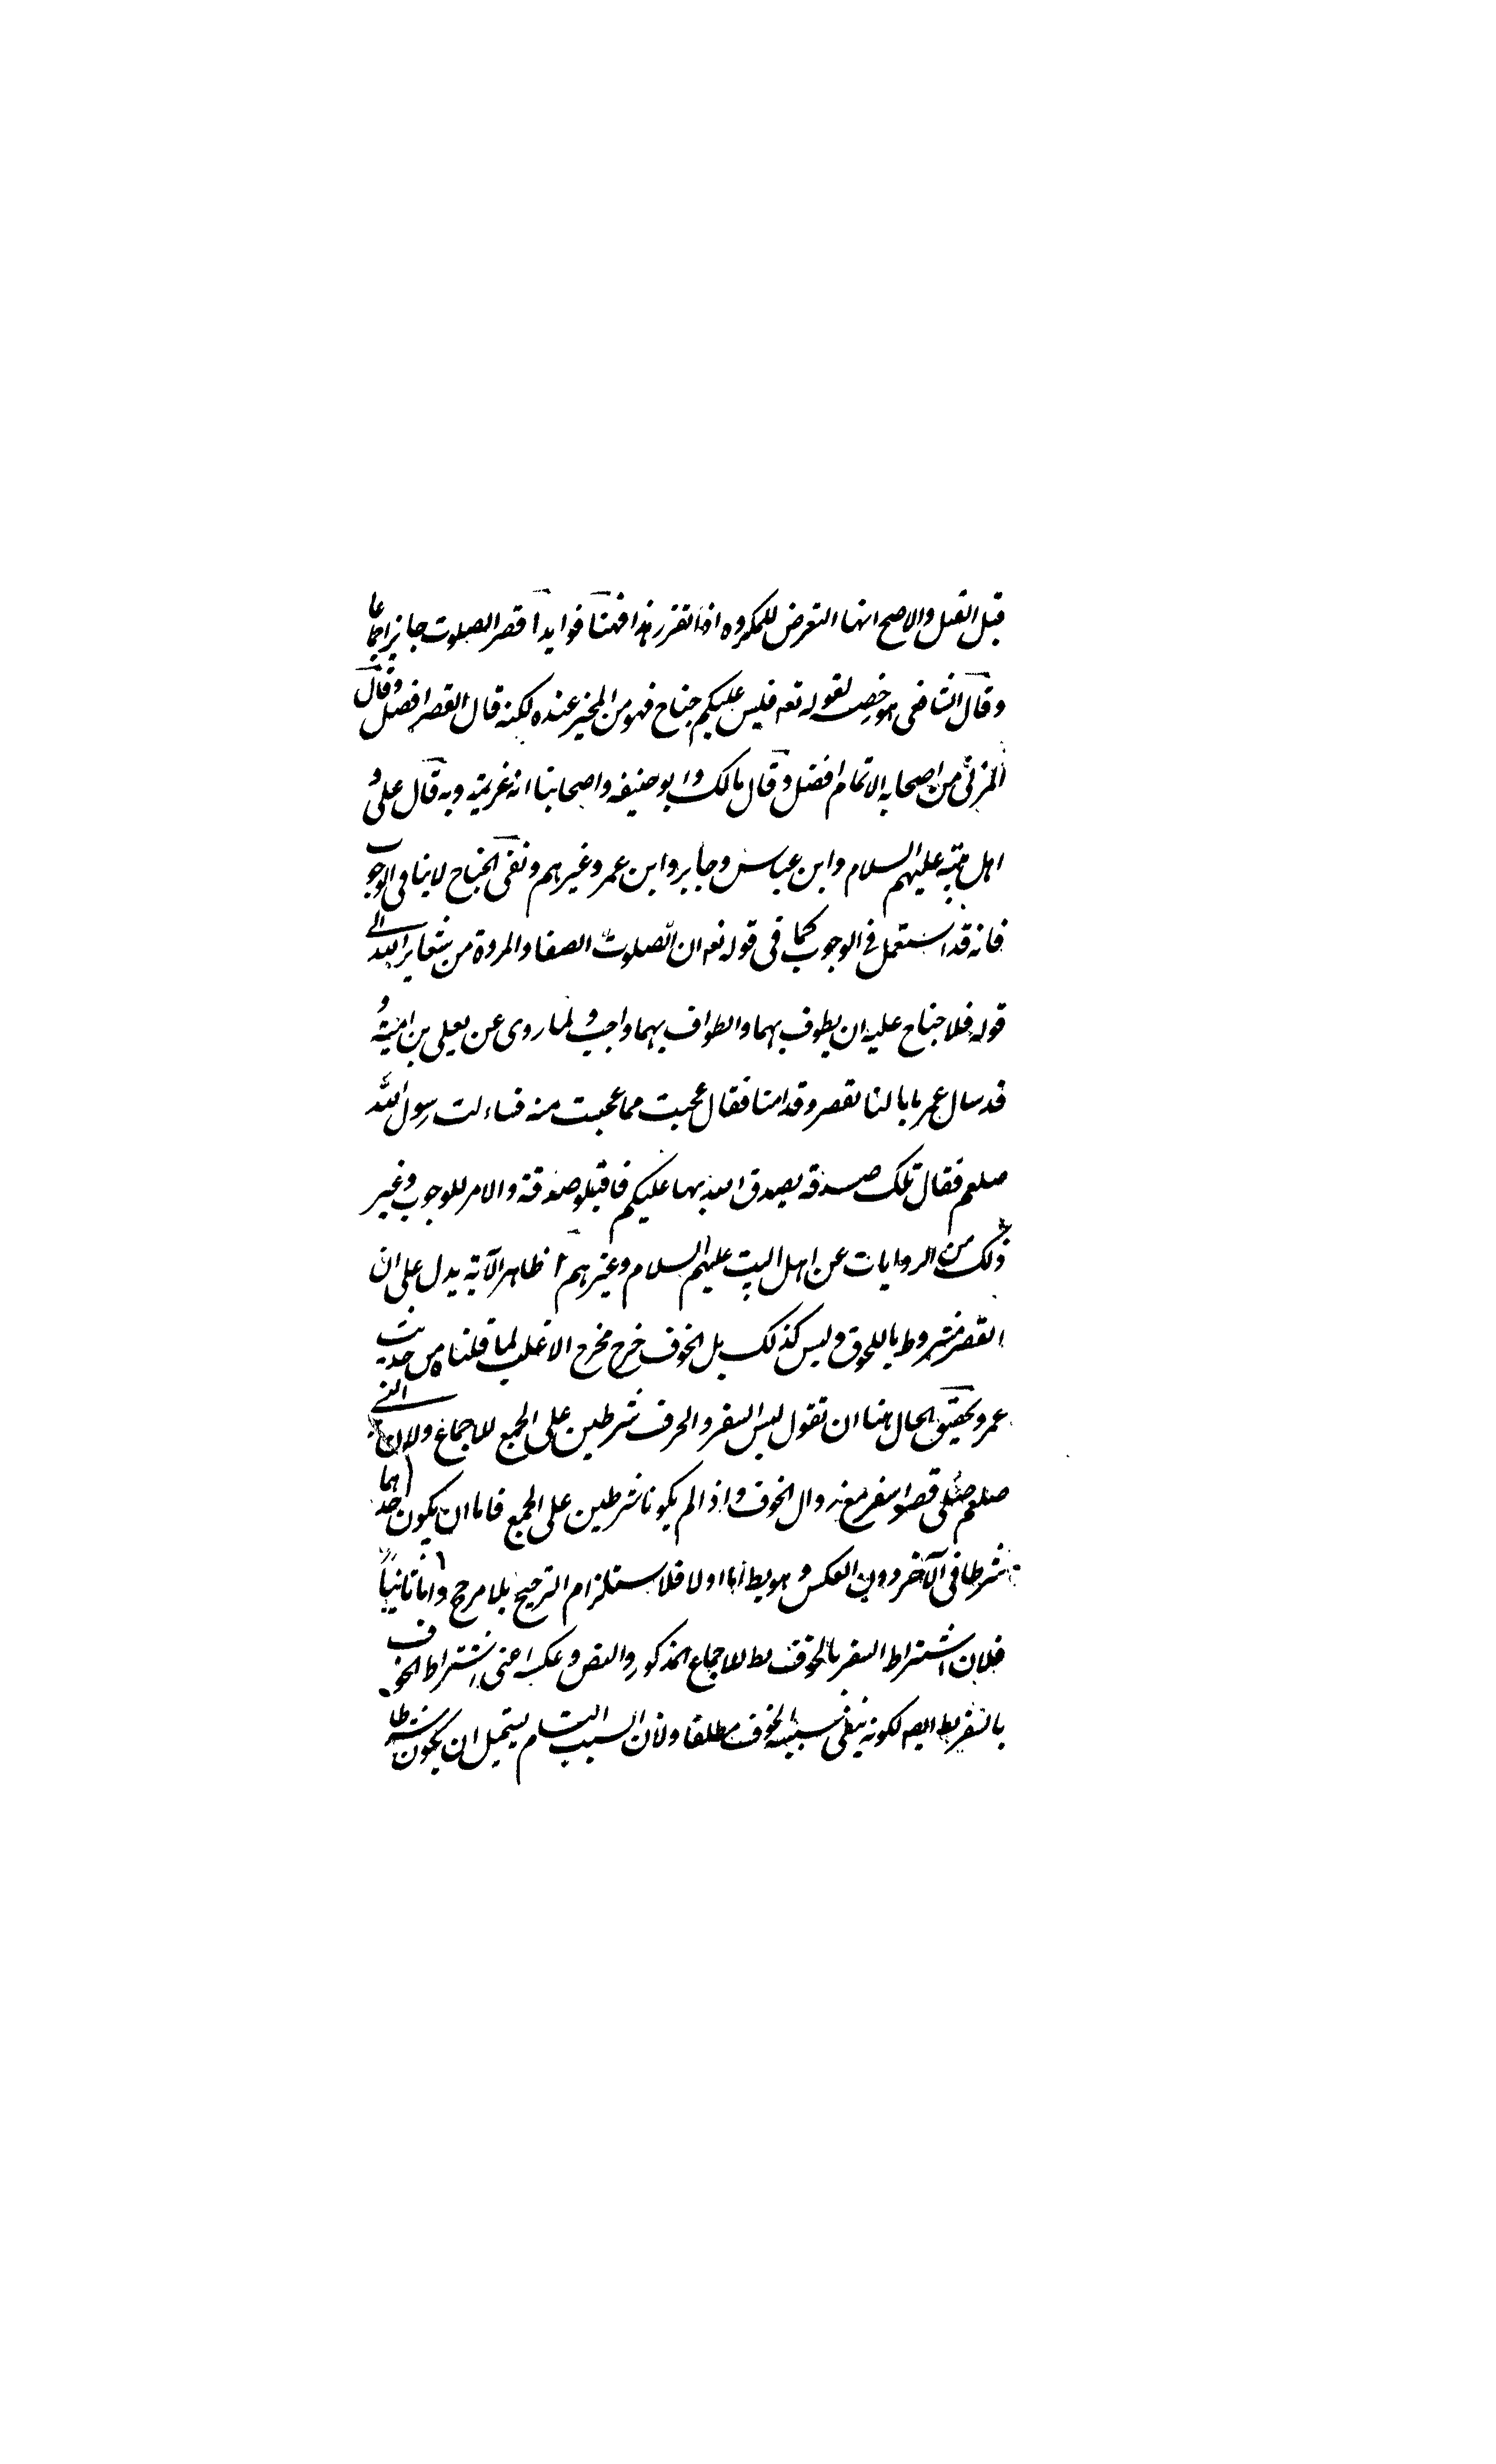 قيل القتل والاصح انها التعرض للمكروه اذا تقرر هذا فهنا فوايد آ قصر الصلوت جايز اجماعا
وقال الشافعى هو رخصة لقوله تعه فليس عليكم جناح فهو من المخير عنده لكنه قال القصر افضل وقال
المزنى من اصحابه الاتمام افضل وقال مالك وابو حنيفه واصحابنا انه عزيمة وبه قال على و
اهل بيته عليهم السلام وابن عباس وجابر وابن عمر وغيرهم ونفى الجناح لا ينافى الوجوب
فانه قد استعمل فى الوجوب كما فى قوله تعه ان الصلوت الصفا والمروة من شعاير الله الى
قوله فلا جناح عليه ان يطوف بهما والطواف بهما واجب ولما روى عن يعلى بن امية و
قد سال عمر ما بالنا نقصر وقد امنا فقال عجبت مما عجبت منه فساءلت رسول الله
صلعم فقال تلك صدقة يصدق الله بها عليكم فاقبلو صدقته والامر للوجوب وغير
ذلك من الروايات عن اهل البيت عليهم السلام وغيرهم ظاهر الآية يدل على ان
القصر مشروط بالخوف وليس كذلك بل الخوف خرج مخرج الاغلب لما قلناه من حديث
عمر وتحقيق الحال هنا ان نقول ليس السفر والخوف شرطين على الجمع للاجماع ولان النبى
صلعم صلى قصرا سفر مع زوال الخوف واذا لم يكونا شرطين على الجمع فاما ان يكون احدهما
شرطا فى الآخر دون العكس وهو بط اما اولا فلاستلزام الترجيح بلا مرجح واما ثانيا
فلان اشتراط السفر بالخوف بط للاجماع المذكور والنص وعكسه اعنى اشتراط الخوف
بالسفر بط ايضه لكونه ينفى سببية الخوف مطلقا ولان السبب التام يستحيل ان يكون شرطا